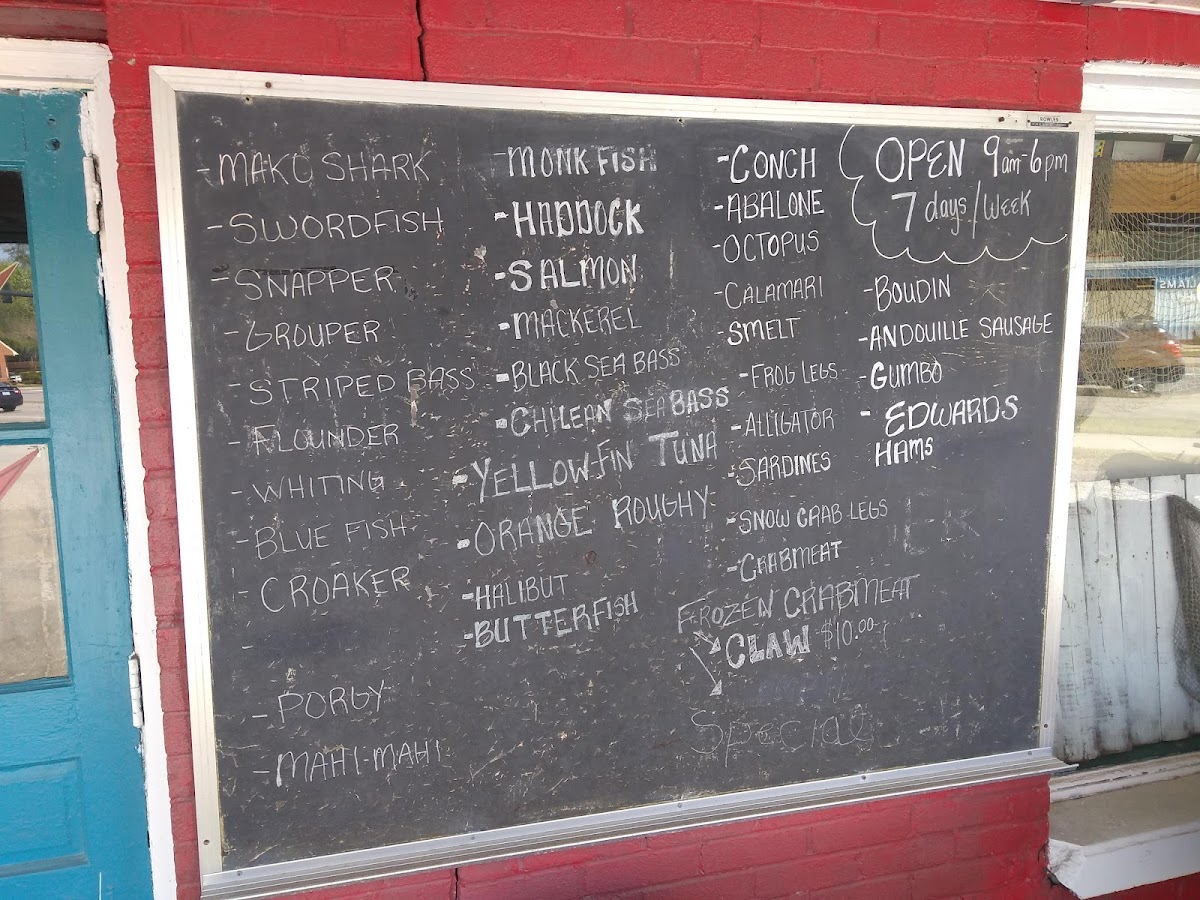 - MAKO SHARK
- SWORDFISH
- SNAPPER
- GROUPER
- STRIPED BASS
- FLOUNDER
- WHITING
- BLUE FISH
- CROAKER
- PORGY
- MAHI-MAHI
- MONK FISH
- HADDOCK
- SALMON
- MACKEREL
- BLACK SEA BASS
- CHILEAN SEA BASS
- YELLOW-FIN TUNA
- ORANGE ROUGHY
- HALIBUT
- BUTTERFISH
- CONCH
- ABALONE
- OCTOPUS
- CALAMARI
- SMELT
- FROG LEGS
- ALLIGATOR
- SARDINES
- SNOW CRAB LEGS
- CRABMEAT
FROZEN CRABMEAT
CLAW $10.00
Special
OPEN 9am-6pm
7 days/WEEK
- BOUDIN
- ANDOUILLE SAUSAGE
- GUMBO
- EDWARDS
HAMS